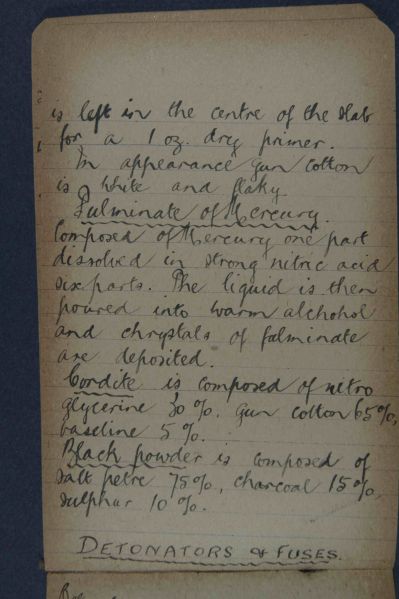 is left in the centre of the slab
for a 1 oz. dry primer.
In appearance gun cotton
is white and flaky
Fulminate of Mercury.
Composed of Mercury one part
dissolved in strong nitric acid
six parts. The liquid is then
poured into warm alchohol
and chrystals of fulminate
are deposited.
Cordite is composed of nitro
glycerine 30%. gun cotton 65%,
vaseline 5%.
Black powder is composed of
salt petre 75%, charcoal 15%,
sulphur 10%.
DETONATORS & FUSES.